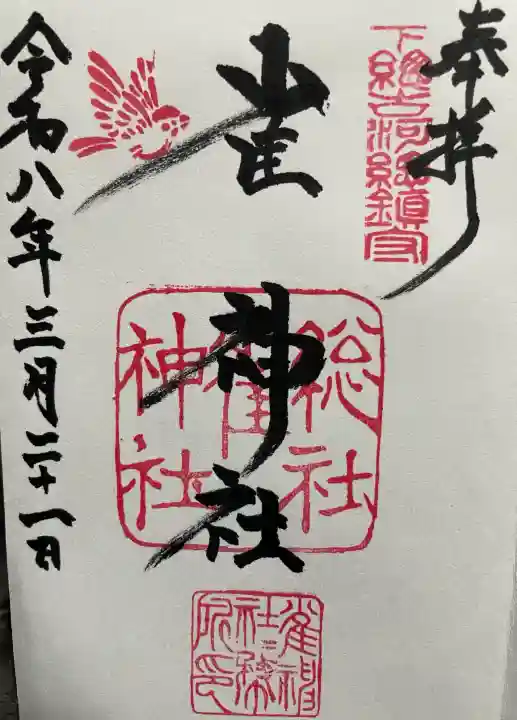 奉拝
下総古河総鎮守
雀神社
総社
雀
神社
令和八年三月二十一日
雀神
社務
所印